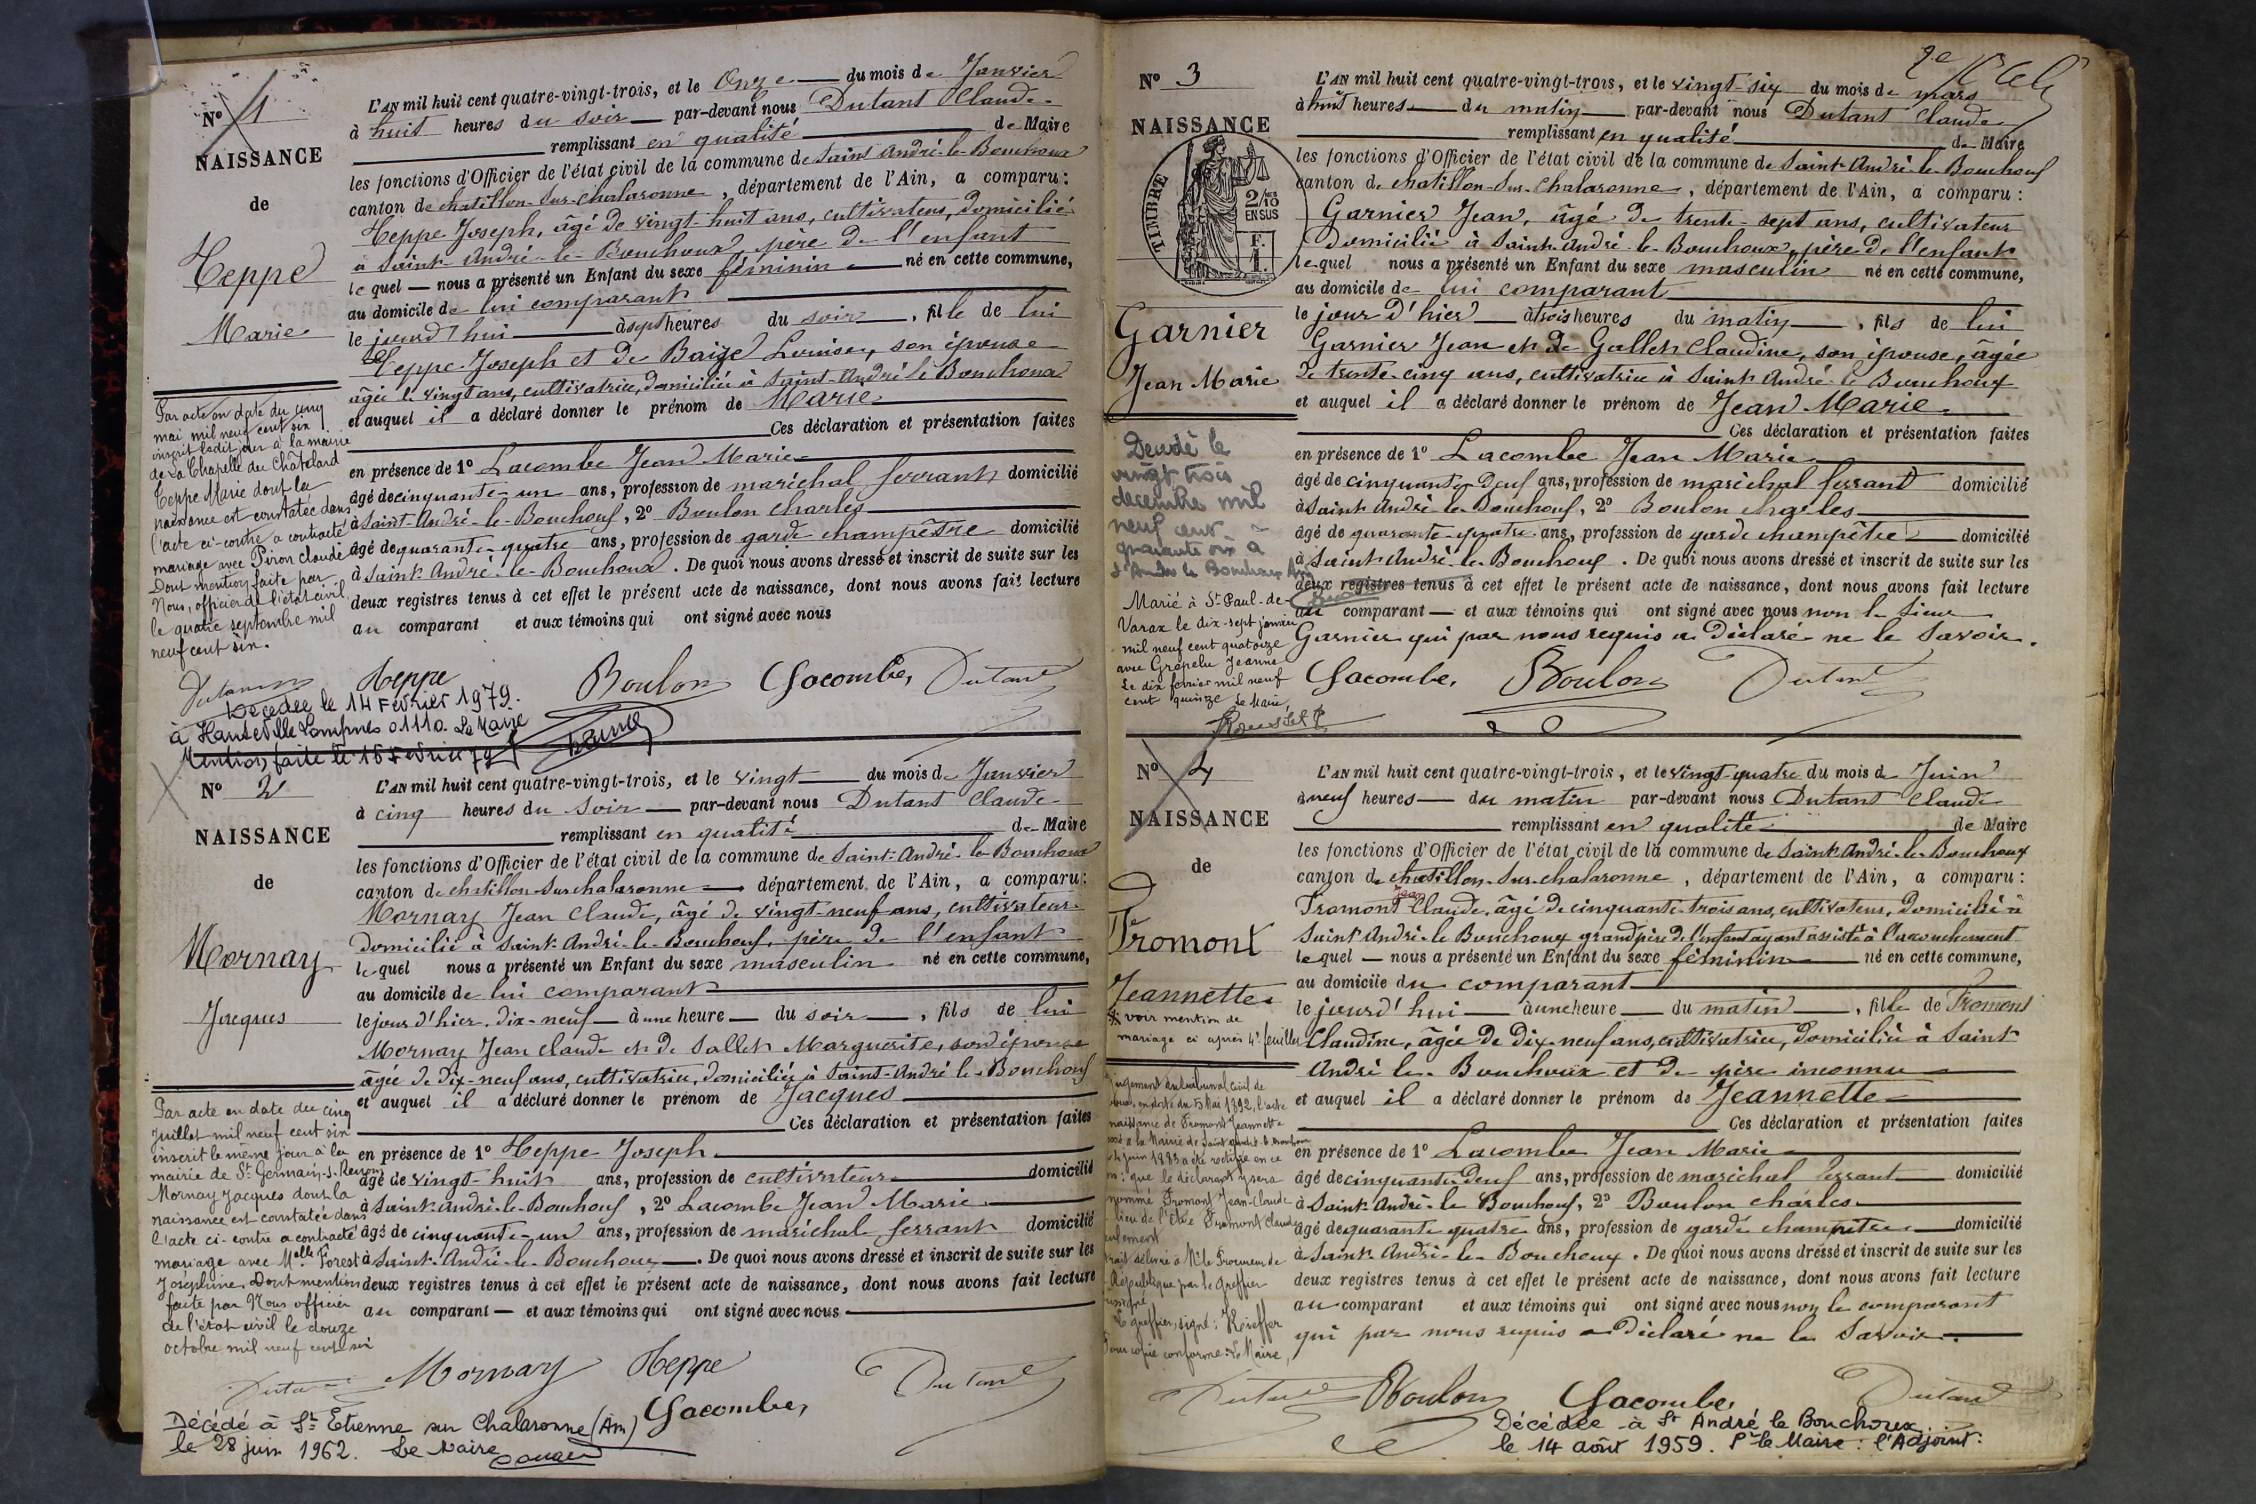 Nº 1
NAISSANCE
de
Heppe
Marie
L'AN mil huit cent quatre-vingt-trois, et le Onze du mois de Janvier
à huit heures du soir par-devant nous Dutant Claude
remplissant en qualité de Maire
les fonctions d'Officier de l'état civil de la commune de Saint André-le-Bouchoux
canton de chatillon-Sur-chalaronne, département de l'Ain, a comparu :
Heppe Joseph, âgé de vingt-huit ans, cultivateur, domicilié
à Saint-André-le-Bouchoux, père de l'enfant
lequel nous a présenté un Enfant du sexe féminin né en cette commune,
au domicile de lui comparant
le jourd'hui à sept heures du soir, fille de lui
Heppe Joseph et de Baizet Louise, son épouse
âgée de vingt ans, cultivatrice, domiciliée à Saint-André le Bouchoux
et auquel il a déclaré donner le prénom de Marie
Ces déclaration et présentation faites
en présence de 1º Lacombe Jean Marie
âgé de cinquante-un ans, profession de maréchal ferrant domicilié
à Saint-André-le-Bouchoux, 2º Boulon charles
âgé de quarante-quatre ans, profession de garde champêtre domicilié
à Saint-André-le-Bouchoux. De quoi nous avons dressé et inscrit de suite sur les
deux registres tenus à cet effet le présent acte de naissance, dont nous avons fait lecture
au comparant et aux témoins qui ont signé avec nous
Par acte en date du cinq
mai mil neuf cent six
inscrit ledit jour à la mairie
de La Chapelle du Châtelard
Heppe Marie dont la
naissance est constatée dans
l'acte ci-contre a contracté
mariage avec Piron Claude
Dont mention faite par
Nous, officier de l'état civil,
le quatre septembre mil
neuf cent six.
Dutant Heppe Boulon Lacombe, Dutant
Décédée le 14 Février 1979.
à Hauteville Lompnes 01110. Le Maire
Mention faite le 16 Février 79
Nº 2
NAISSANCE
de
Mornay
Jacques
L'AN mil huit cent quatre-vingt-trois, et le vingt du mois de Janvier
à cinq heures du soir par-devant nous Dutant Claude
remplissant en qualité de Maire
les fonctions d'Officier de l'état civil de la commune de Saint-André-le-Bouchoux
canton de chatillon-Sur-chalaronne département de l'Ain, a comparu :
Mornay Jean Claude, âgé de vingt-neuf ans, cultivateur
domicilié à Saint-André-le-Bouchoux, père de l'enfant
lequel nous a présenté un Enfant du sexe masculin né en cette commune,
au domicile de lui comparant
le jour d'hier, dix-neuf à une heure du soir, fils de lui
Mornay Jean Claude et de Sallet Marguerite, son épouse
âgée de dix-neuf ans, cultivatrice, domiciliée à Saint-André le-Bouchoux
et auquel il a déclaré donner le prénom de Jacques
Ces déclaration et présentation faites
en présence de 1º Heppe Joseph
âgé de vingt-huit ans, profession de cultivateur domicilié
à Saint-André-le-Bouchoux, 2º Lacombe Jean Marie
âgé de cinquante-un ans, profession de maréchal ferrant domicilié
à Saint-André-le-Bouchoux. De quoi nous avons dressé et inscrit de suite sur les
deux registres tenus à cet effet le présent acte de naissance, dont nous avons fait lecture
au comparant et aux témoins qui ont signé avec nous
Par acte en date du cinq
Juillet mil neuf cent six
inscrit le même jour à la
mairie de St Germain-s-Renon
Mornay Jacques dont la
naissance est constatée dans
l'acte ci-contre a contracté
mariage avec Melle Forest
Joséphine. Dont mention
faite par Nous officier
de l'état civil le douze
octobre mil neuf cent six
Dutant Mornay Heppe Dutant
Lacombe,
Décédé à St Etienne sur Chalaronne (Ain)
le 28 juin 1962. Le Maire
Nº 3
NAISSANCE
TIMBRE
2/10 EN SUS
Garnier
Jean Marie
L'AN mil huit cent quatre-vingt-trois, et le vingt-six du mois de mars
à huit heures du matin par-devant nous Dutant Claude
remplissant en qualité de Maire
les fonctions d'Officier de l'état civil de la commune de Saint-André-le-Bouchoux
canton de chatillon-Sur-chalaronne, département de l'Ain, a comparu :
Garnier Jean, âgé de trente-sept ans, cultivateur
domicilié à Saint-André-le-Bouchoux, père de l'enfant
lequel nous a présenté un Enfant du sexe masculin né en cette commune,
au domicile de lui comparant
le jour d'hier à trois heures du matin, fils de lui
Garnier Jean et de Gallet Claudine, son épouse, âgée
de trente-cinq ans, cultivatrice à Saint André-le Bouchoux
et auquel il a déclaré donner le prénom de Jean Marie
Ces déclaration et présentation faites
en présence de 1º Lacombe Jean Marie
âgé de cinquante-deux ans, profession de maréchal ferrant domicilié
à Saint-André-le-Bouchoux, 2º Boulon charles
âgé de quarante-quatre ans, profession de garde champêtre domicilié
à Saint-André-le-Bouchoux. De quoi nous avons dressé et inscrit de suite sur les
deux registres tenus à cet effet le présent acte de naissance, dont nous avons fait lecture
au comparant et aux témoins qui ont signé avec nous non le sieur
Garnier qui par nous requis a déclaré ne le savoir.
Décédé le
vingt trois
décembre mil
neuf cent
quarante six à
St André le Bouchoux Ain
Marié à St-Paul-de-
Varax le dix-sept janvier
mil neuf cent quatorze
avec Grapelu Jeanne
Le dix février mil neuf
cent quinze Le Maire,
Lacombe, Boulon Dutant
Nº 4
NAISSANCE
de
Fromont
Jeannette
voir mention de
mariage ci après 4e feuillet
L'AN mil huit cent quatre-vingt-trois, et le vingt-quatre du mois de Juin
à neuf heures du matin par-devant nous Dutant Claude
remplissant en qualité de Maire
les fonctions d'Officier de l'état civil de la commune de Saint-André-le-Bouchoux
canton de chatillon-Sur-chalaronne, département de l'Ain, a comparu :
Jean
Fromont Claude, âgé de cinquante-trois ans, cultivateur, domicilié à
Saint-André-le Bouchoux grand père de l'enfant ayant assisté à l'accouchement
lequel nous a présenté un Enfant du sexe féminin né en cette commune,
au domicile du comparant
le jourd'hui à une heure du matin, fille de Fromont
Claudine, âgée de dix-neuf ans, cultivatrice, domiciliée à Saint
André le Bouchoux et de père inconnu
et auquel il a déclaré donner le prénom de Jeannette
Ces déclaration et présentation faites
en présence de 1º Lacombe Jean Marie
âgé de cinquante-deux ans, profession de maréchal ferrant domicilié
à Saint-André-le Bouchoux, 2º Boulon charles
âgé de quarante quatre ans, profession de garde champêtre domicilié
à Saint-André-le-Bouchoux. De quoi nous avons dressé et inscrit de suite sur les
deux registres tenus à cet effet le présent acte de naissance, dont nous avons fait lecture
au comparant et aux témoins qui ont signé avec nous non le comparant
qui par nous requis a déclaré ne le savoir.
jugement du tribunal civil de
en date du 5 Mai 1892, l'acte
naissance de Fromont Jeannette
à la Mairie de Saint André-le-Bouchoux
juin 1883 a été rectifié en ce
que le déclarant y sera
nommé Fromont Jean-Claude
lieu de l'être Fromont Claude
délivré à Mr le Procureur de
République par le Greffier
Le greffier, signé :
Pour copie conforme : Le Maire,
Dutant Boulon Lacombe, Dutant
Décédée à St André le Bouchoux
le 14 août 1959. Pr le Maire : l'Adjoint :